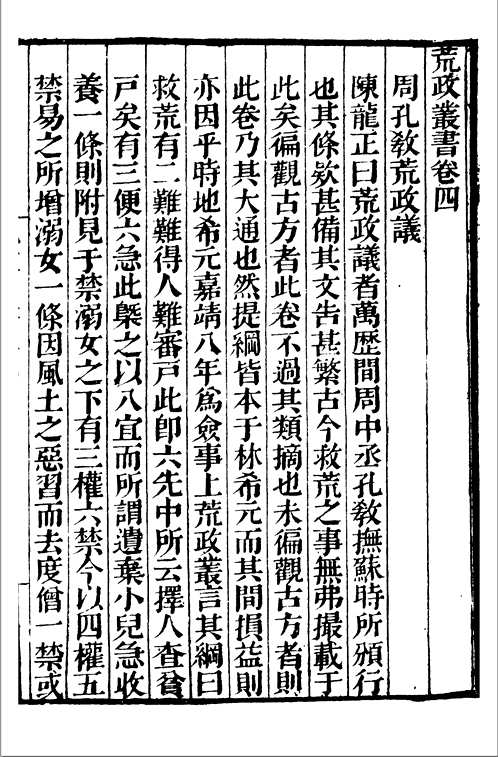 荒政叢書卷四
周孔敎荒政議
陳龍正曰荒政議者萬歷間周中丞孔敎撫蘇時所頒行
也其條欵甚備其文告甚繁古今救荒之事無弗撮載于
此矣徧觀古方者此卷不過其類摘也未徧觀古方者則
此卷乃其大通也然提綱皆本于林希元而其間損益則
亦因乎時地希元嘉靖八年爲僉事上荒政叢言其綱曰
救荒有二難難得人難審戸此卽六先中所云擇人查貧
戸矣有三便六急此槩之以八宜而所謂遺棄小兒急收
養一條則附見于禁溺女之下有三權六禁今以四權五
禁易之所增溺女一條因風土之惡習而去度僧一禁或